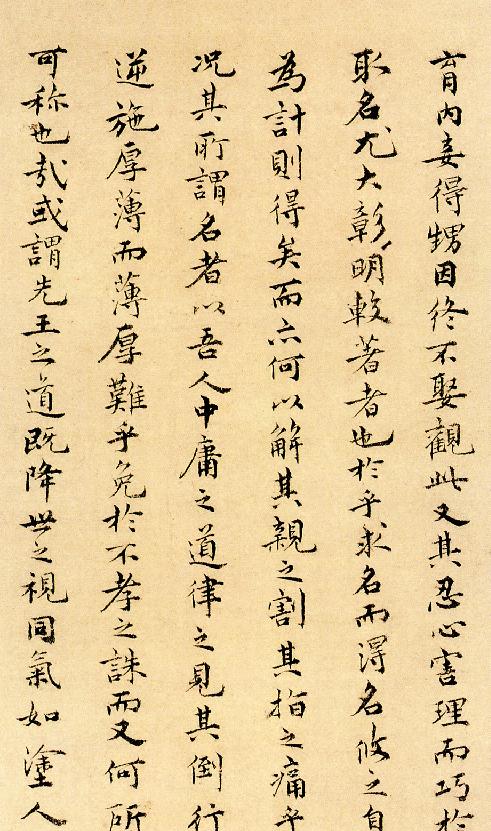 育內妾得甥因終不娶觀此又其忍心害理而巧於
取名尤大彰明較著者也於乎求名而得名攸之自
為計則得矣而亦何以解其親之割其指之痛乎
况其所謂名者以吾人中庸之道律之見其倒行
逆施厚薄而薄厚難乎免於不孝之誅而又何所
可稱也哉或謂先王之道既降世之視同氣如塗人